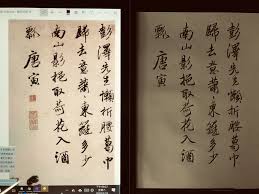 彭澤先生懶折腰葛巾
歸去意蕭〻東籬多少
南山影挹取荷花入酒
瓢 唐寅
彭澤先生懶折腰葛巾
歸去意蕭〻東籬多少
南山影挹取荷花入酒
瓢 唐寅